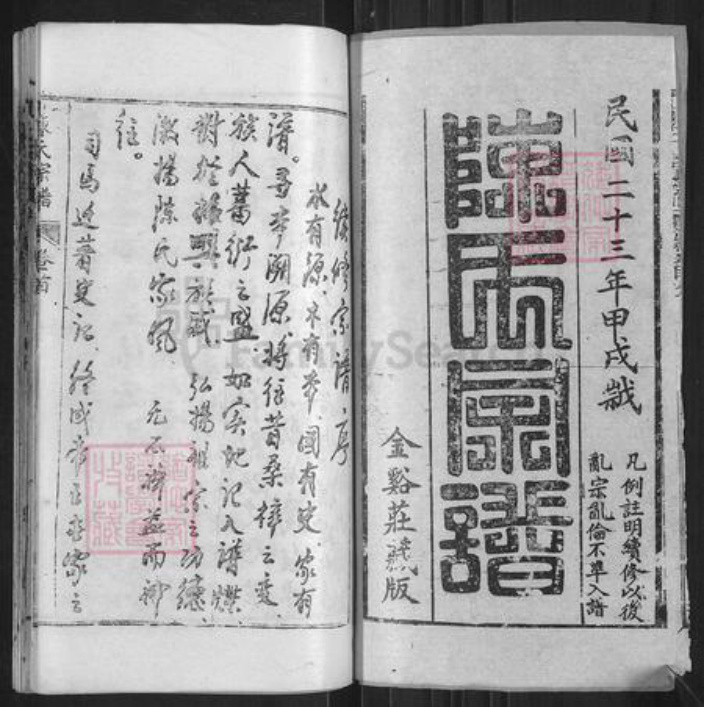 民國二十三年甲戌歲
凡例註明續修以後
亂宗亂倫不準入譜
陳氏宗譜
金谿莊藏版
續修宗譜序
水有源、木有本、國有史、家有
譜。尋本溯源、將往昔桑梓之変、
族人蕃衍之盛、如实地记入譜牒、
對於振興族威、弘揚祖宗之功德、
激揚陈氏家風、
往。
司馬迁著史记、
陳氏宗譜
卷首
FamilySearch